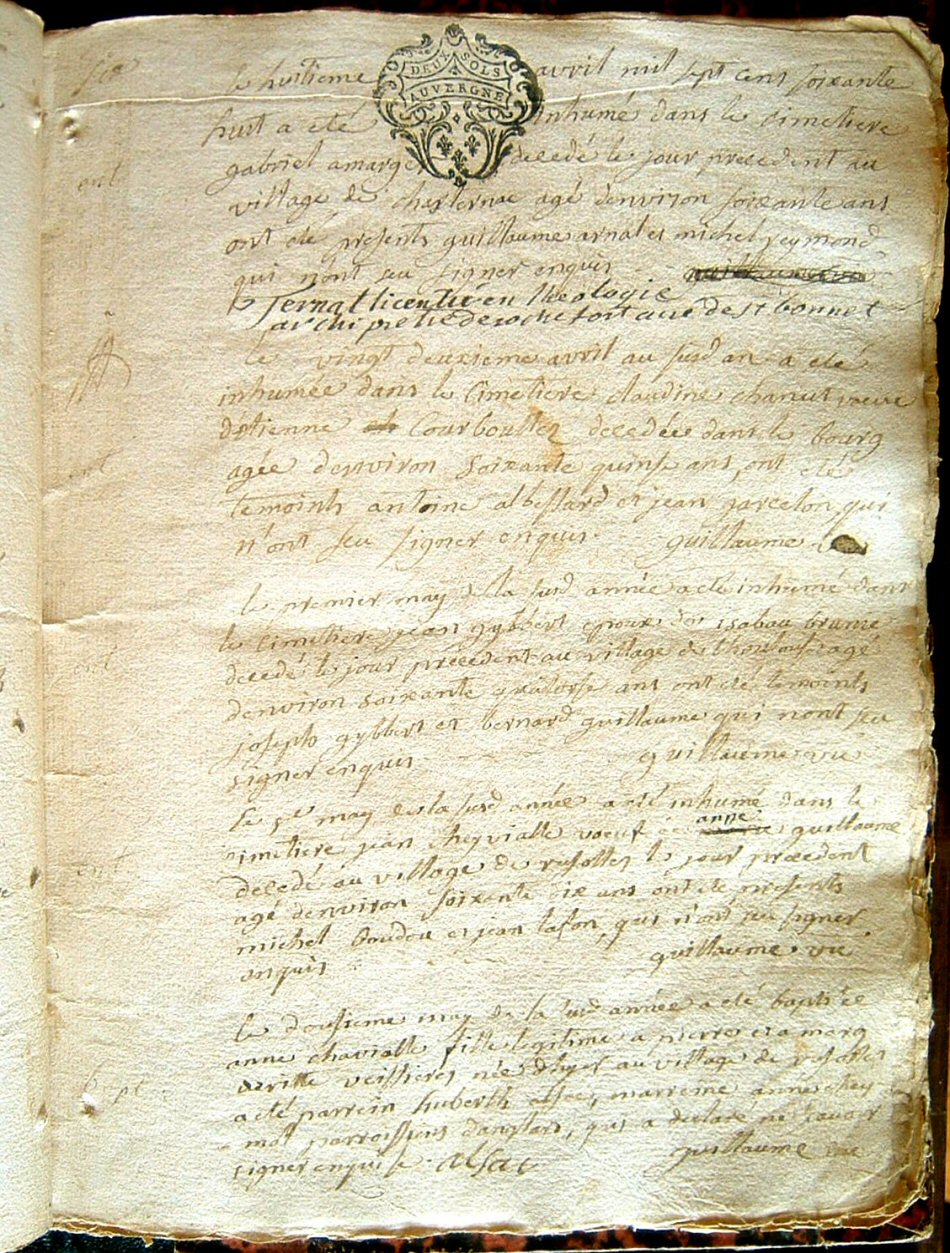 six
DEUX SOLS
AUVERGNE
le huitieme avril mil sept cens soixante
huit a été inhumé dans le cimetiere
gabriel amarger decedé le jour precedent au
village de agé denviron soixante ans
ont été presents guillaume arnal et michel reymond
qui nont seu signer enquis
ternat licentié en theologie
archipretre de rochefort curé de st bonnet
le vingt deuxieme avril au susd an a été
inhumée dans le cimetiere claudine chanut veuve
d'etienne decedée dans le bourg
agée denviron soixante quinse ans, ont été
temoints antoine albessard et jean parcelon, qui
n'ont seu signer enquis guillaume
ent
le premier may de la susd année a été inhumé dans
le cimetiere jean gybbert epoux de isabau
decedé le jour précédent au village de agé
denviron soixante quatorse ans ont été temoints
joseph gybbert et bernard guillaume qui nont seu
signer enquis guillaume vic
ent
le 5e may de la susd année a été inhumé dans le
cimetiere jean cheyvialle voeuf de anne guillaume
decedé au village de le jour precedent
agé denviron soixante dix ans ont été presents
michel boudou et jean lafon, qui n'ont seu signer
enquis guillaume vic
ent
le dousieme may de la susd année a été baptisée
anne chavialle fille legitime a pierre et a marg
veritte veissieres née d'hyer au village de
a été parrein huberth alsac, marreine anne chey
mol parroissiens danglars, qui a declaré ne savoir
signer enquise alsac guillaume vic
bpt